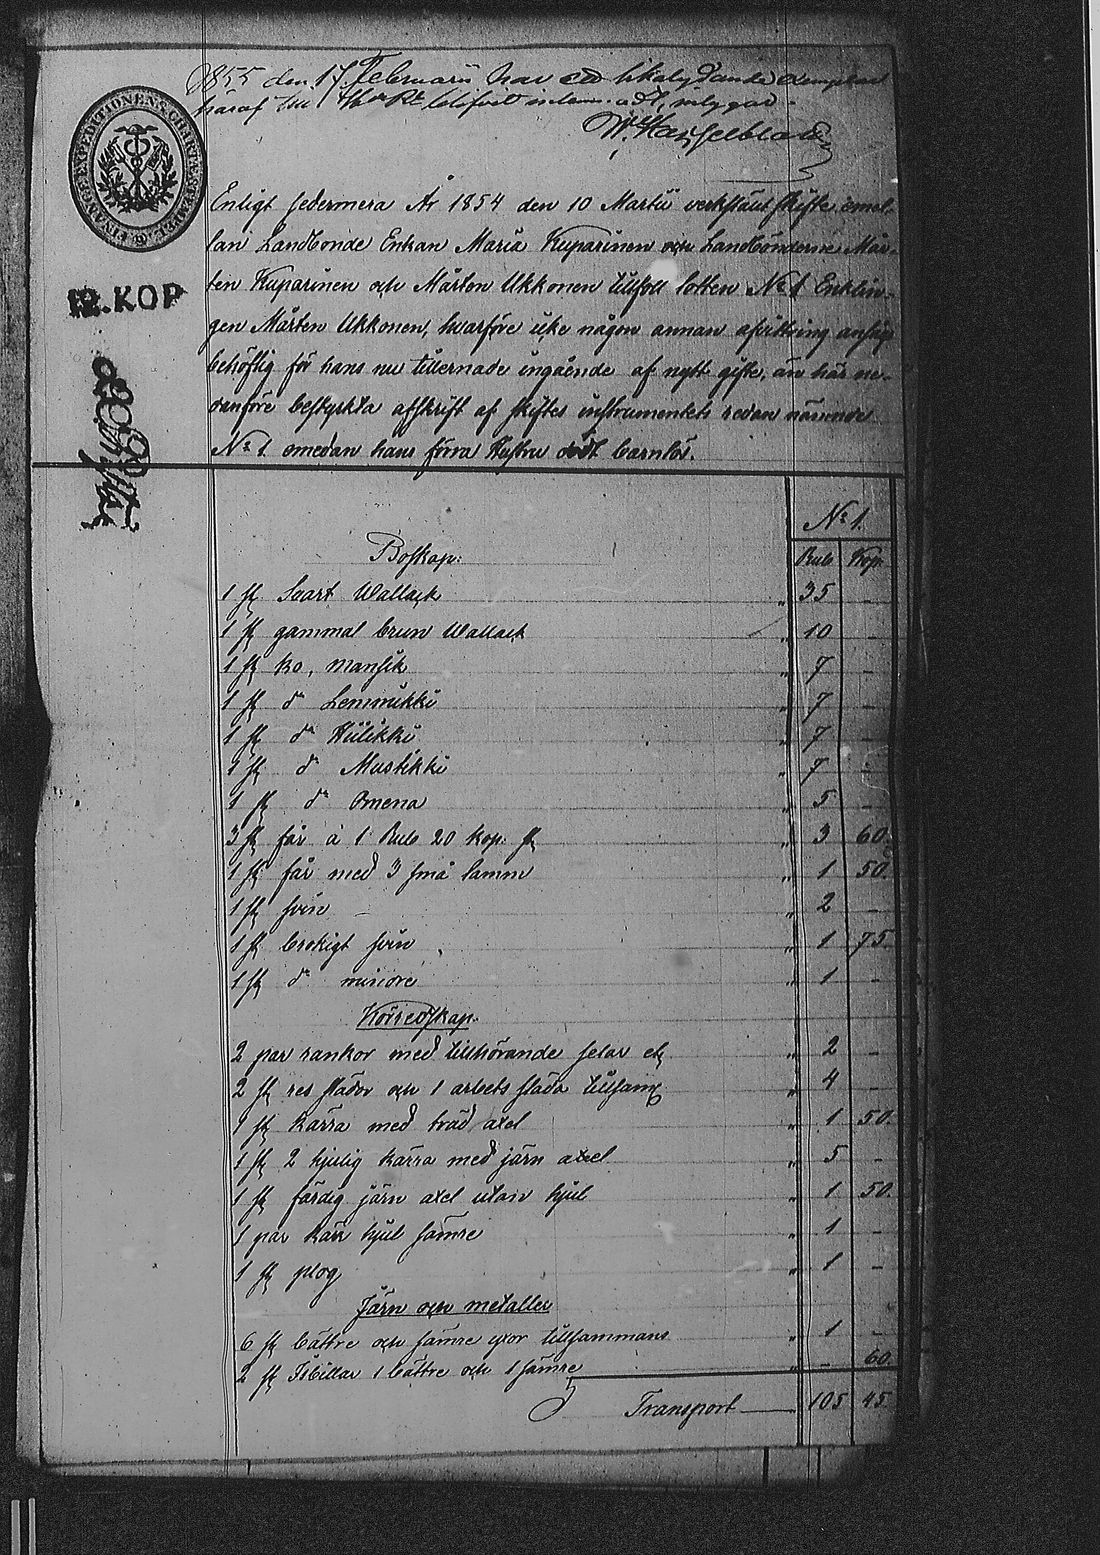 1855 den 17 Februarii har ett likalydande exemplar
häraf till Rt blifvit inlemnadt, intygar
W. Hasselblatt
FINANCE EXPEDITIONENS CHARTÆ STEMPEL
12. KOP
Enligt sedermera År 1854 den 10 Martii verkstäldt skifte emel-
lan Landbonde Enkan Maria Kuparinen och Landbönderne Mår-
ten Kuparinen och Mårten Ukkonen tillföll lotten No 1 Enklin-
gen Mårten Ukkonen, hvarföre icke någon annan afvittring anses
behöflig för hans nu tillernade ingående af nytt gifte, än här ne-
danföre bestyrkta afskrift af skiftes instrumentets redan nämnde
No 1. emedan hans förra Hustru dödt barnlös.
No 1.
Boskap: Rub Kop.
1 st Svart Wallack " 35 -
1 st gammal brun Wallack " 10 -
1 st ko, Mansik " 7 -
1 st do Lemmikki " 7 -
1 st do Hiilikki " 7 -
1 st do Mustikki " 7 -
1 st do Omena " 5 -
3 st får à 1 Rub 20 kop. st " 3 60.
1 st får med 3 små lamm " 1 50.
1 st svin " 2 -
1 st brokigt svin " 1 75.
1 st do mindre " 1 -
Körredskap.
2 par rankor med tillhörande selar etc " 2 -
2 st res slädor och 1 arbets släda tillsam " 4 -
1 st kärra med träd axel " 1 50.
1 st 2 hjulig kärra med järn axel " 5 -
1 st färdig järn axel utan hjul " 1 50.
1 par kärr hjul sämre " 1 -
1 st plog " 1 -
Järn och metaller
6 st bättre och sämre yxor tillsammans " 1 -
2 st Isbillar 1 bättre och 1 sämre " - 60.
Transport 105 45.